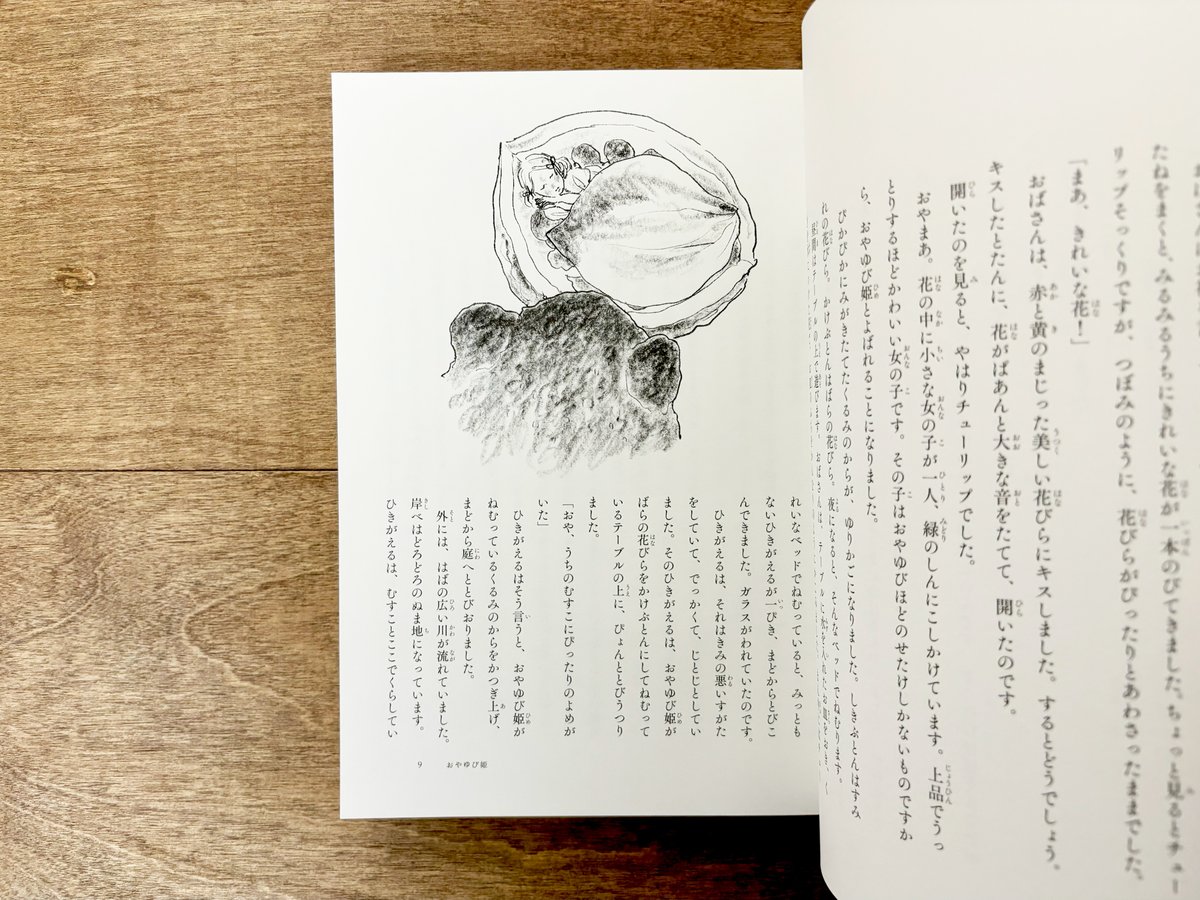 たねをまくと、みるみるうちにきれいな花が一本のびてきました。ちょっと見るとチュー
リップそっくりですが、つぼみのように、花びらがぴったりとあわさったままでした。
「まあ、きれいな花！」
おばさんは、赤と黄のまじった美しい花びらにキスしました。するとどうでしょう。
キスしたとたんに、花がぱあんと大きな音をたてて、開いたのです。
開いたのを見ると、やはりチューリップでした。
おやまあ。花の中に小さな女の子が一人、緑のしんにこしかけています。上品でうっ
とりするほどかわいい女の子です。その子はおやゆびほどのせたけしかないものですか
ら、おやゆび姫とよばれることになりました。
ぴかぴかにみがきたてたくるみのからが、ゆりかごになりました。しきぶとんはすみ
れの花びら。かけぶとんはばらの花びら。夜になると、そんなベッドでねむります。
昼間はテーブルの上で遊びます。おばさんは、テーブルに水を入れたお皿をおき、く
れいなベッドでねむっていると、みっとも
ないひきがえるが一ぴき、まどからとびこ
んできました。ガラスがわれていたのです。
ひきがえるは、それはきみの悪いすがた
をしていて、でっかくて、じとじとしてい
ました。そのひきがえるは、おやゆび姫が
ばらの花びらをかけぶとんにしてねむって
いるテーブルの上に、ぴょんととびうつり
ました。
「おや、うちのむすこにぴったりのよめが
いた」
ひきがえるはそう言うと、おやゆび姫が
ねむっているくるみのからをかつぎ上げ、
まどから庭へととびおりました。
外には、はばの広い川が流れていました。
岸べはどろどろのぬま地になっています。
ひきがえるは、むすことここでくらしてい
9 おやゆび姫